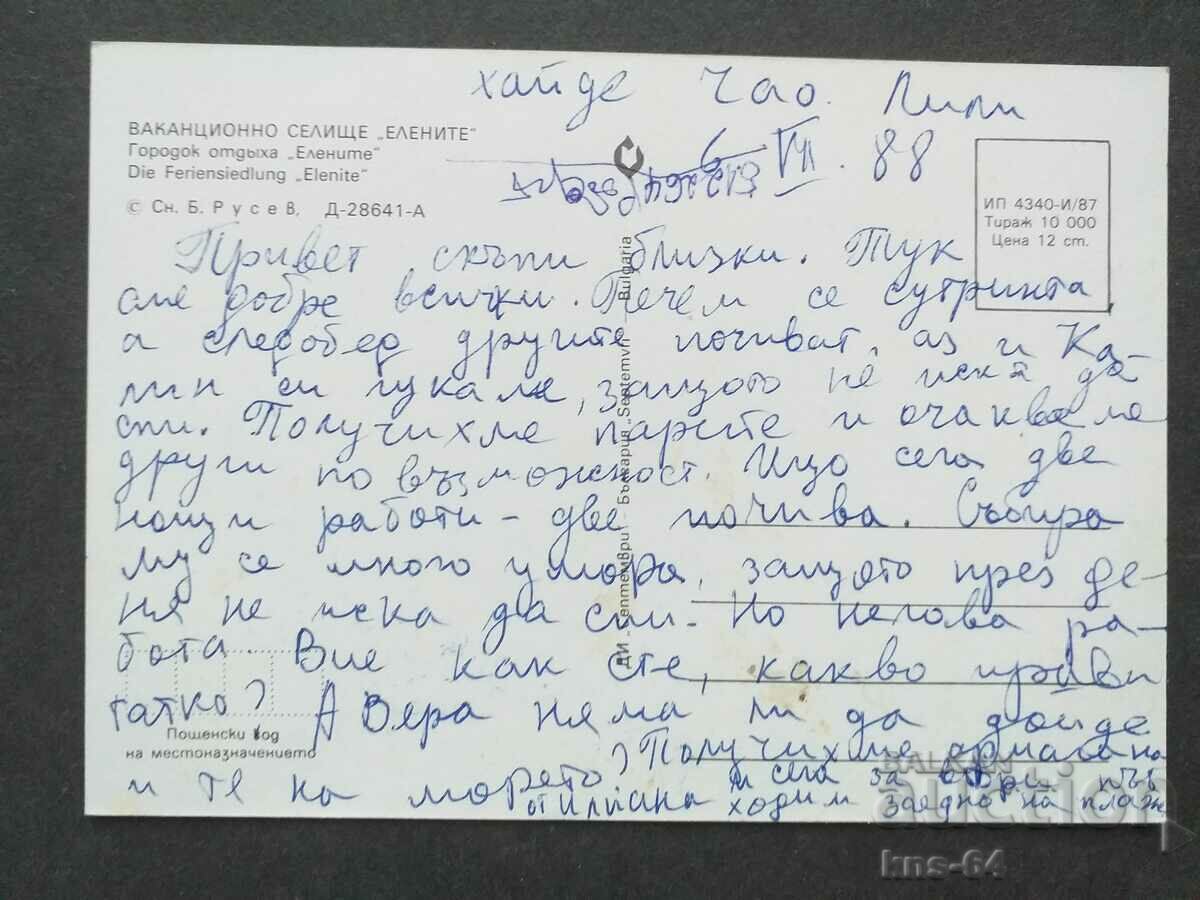 хайде Чао. Лили
6 VII. 88
ВАКАНЦИОННО СЕЛИЩЕ „ЕЛЕНИТЕ"
Городок отдыха „Елените"
Die Feriensiedlung „Elenite"
© Сн. Б. Русев, Д-28641-А
ИП 4340-И/87
Тираж 10 000
Цена 12 ст.
Привет скъпи близки. Тук
сме добре всички. Печем се сутринта,
а следобед другите почиват, аз и Ка-
лин си цукаме, защото не иска да
спи. Получихме парите и очакваме
други по възможност. Ицо сега две
нощи работи - две почива. Събира
му се много умора, защото през де-
ня не иска да спи. Но негова ра-
бота. Вие как сте, какво прави
татко? А Вяра няма ли да дойде
и те на морето? Получихме армагана
от Илиана и сега за
ходим заедно на плаж
ДИ „Септември" България „Septemvri" Bulgaria
Пощенски код
на местоназначението
BALKAN
auction
kns-64